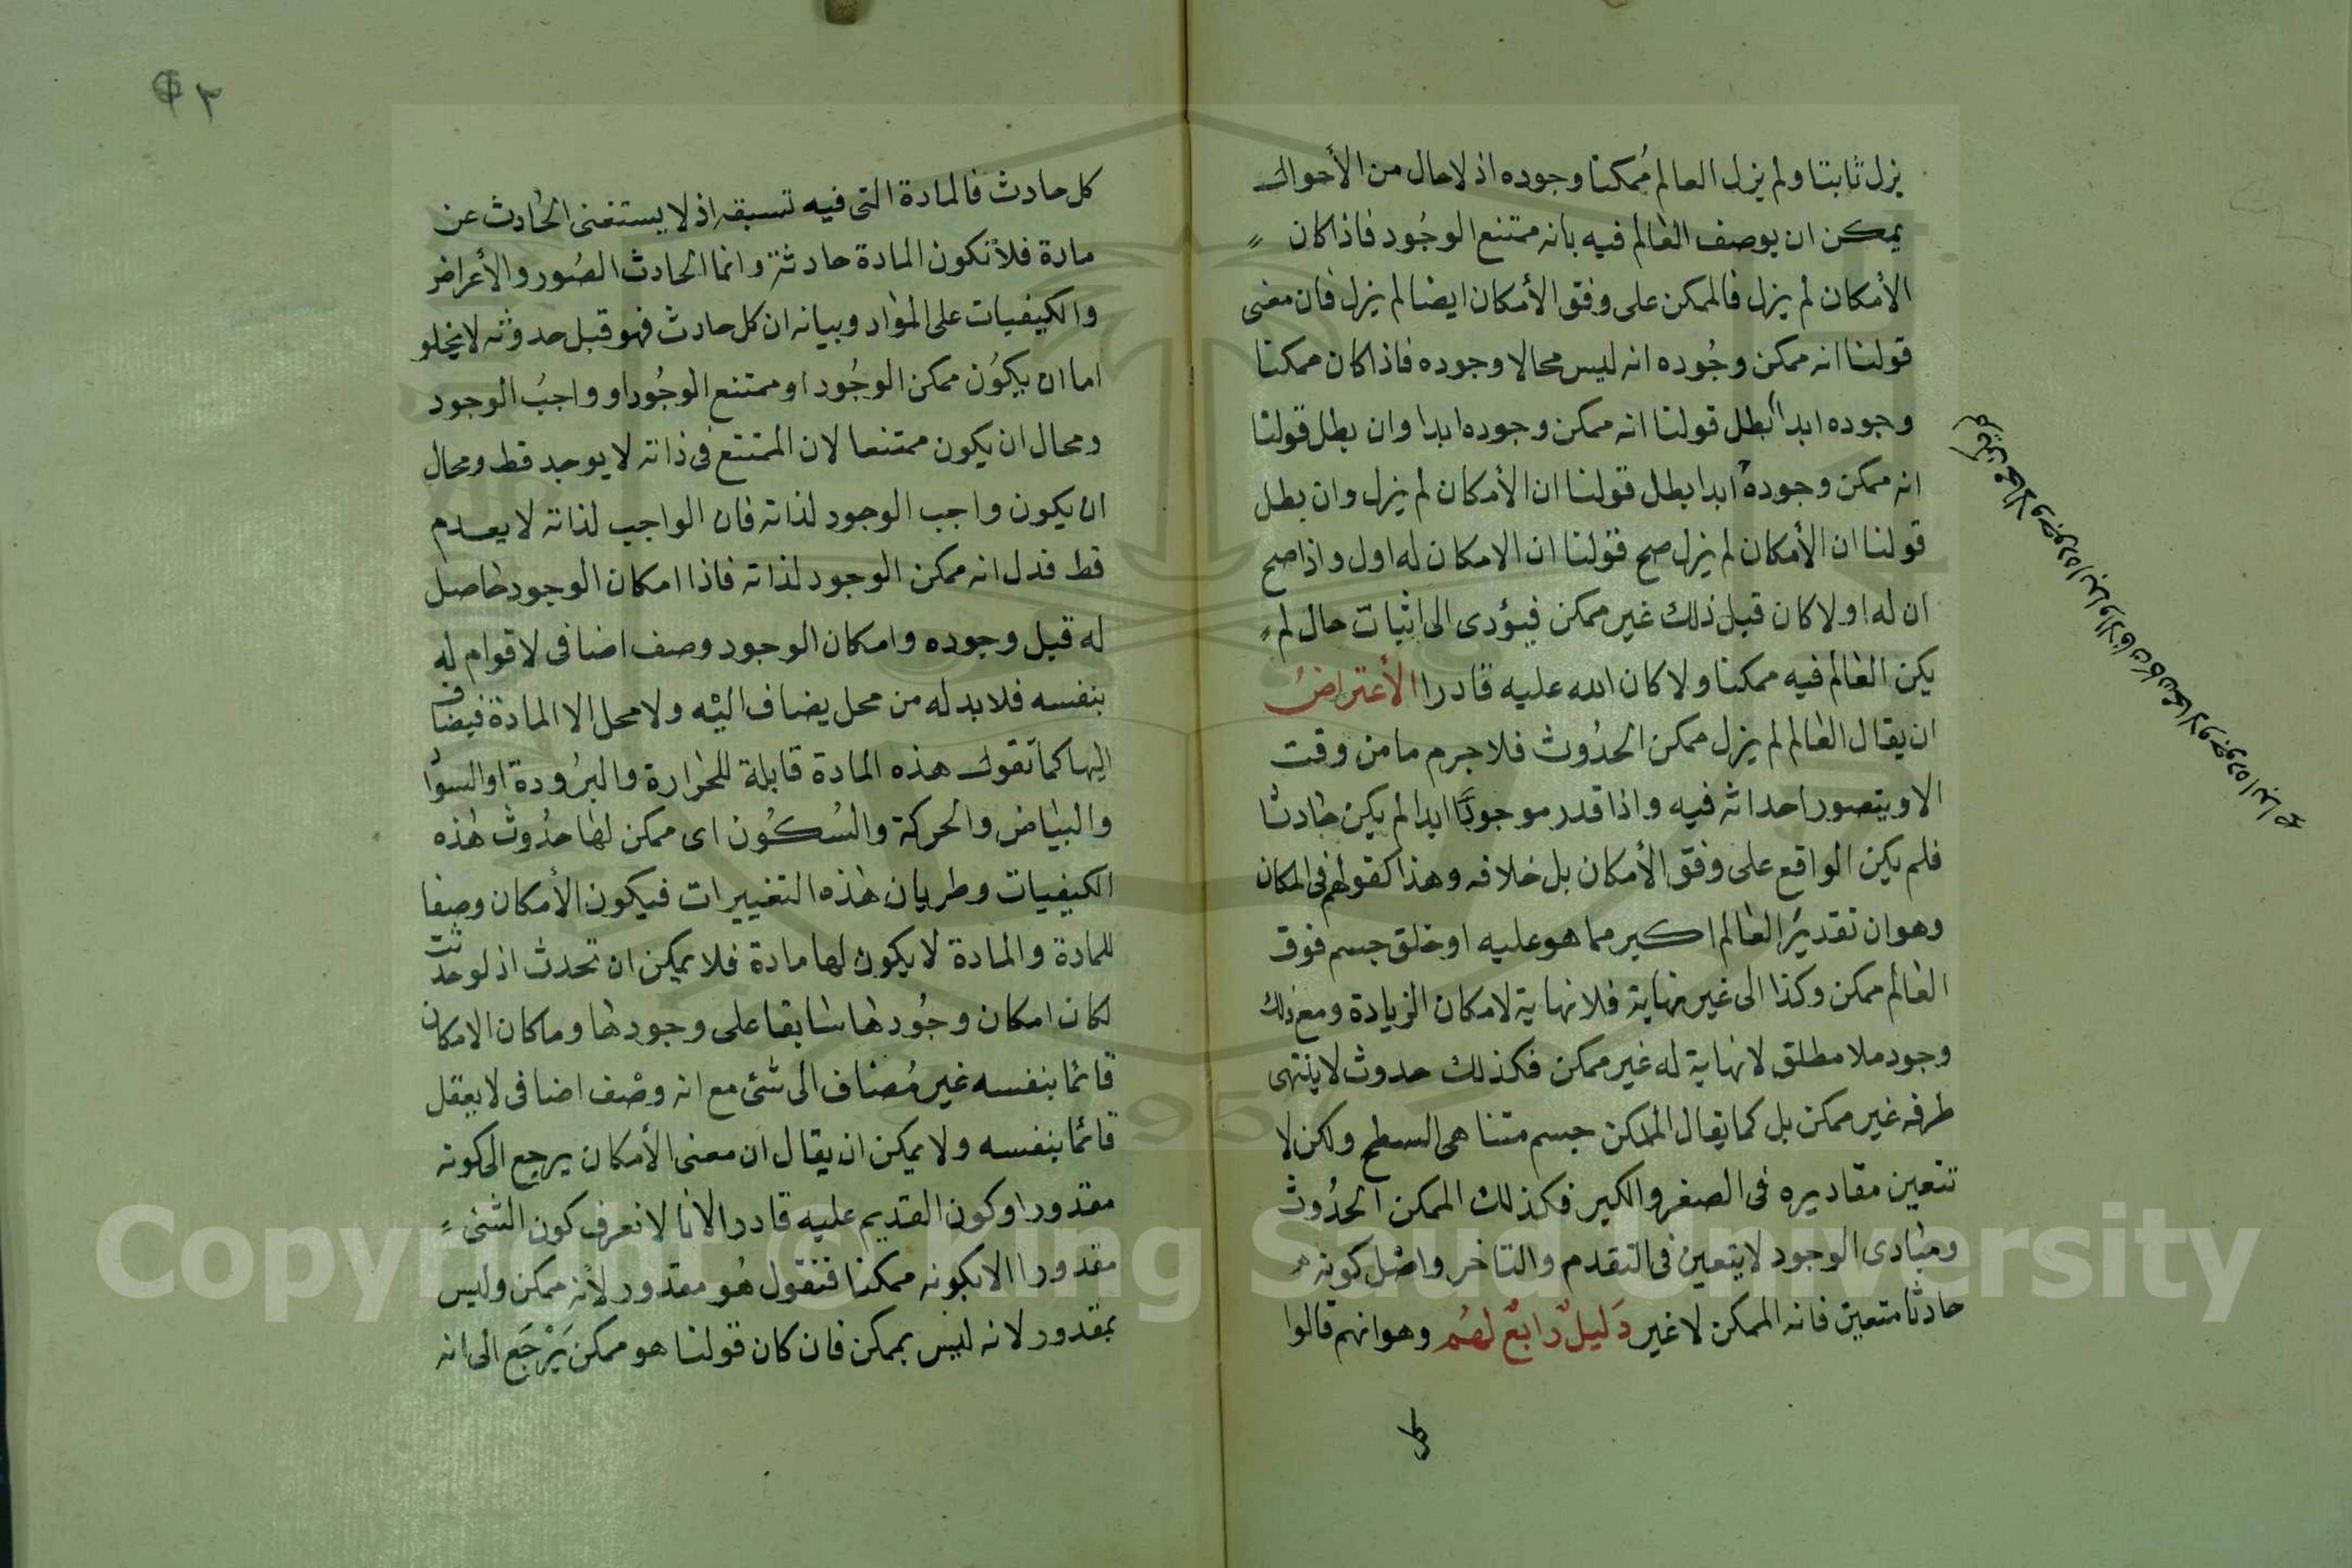 يزل ثابتا ولم يزل العالم مُمكنا وجوده اذ لاحال من الأحوال
يمكن ان يوصف العالم فيه بانه ممتنع الوجُود فاذا كان
الأمكان لم يزل فالممكن على وفق الأمكان ايضا لم يزل فان معنى
قولنا انه ممكن وجُوده انه ليس محالا وجوده فاذا كان ممكنا
وجوده ابدا بطل قولنا انه ممكن وجوده ابدا وان بطل قولنا
انه ممكن وجوده ابدا بطل قولنا ان الأمكان لم يزل وان بطل
قولنا ان الأمكان لم يزل صح قولنا ان الامكان له اول واذا صح
ان له اولا كان قبل ذلك غير ممكن فيؤدى الى اثبات حال لم
يكن العالم فيه ممكنا ولا كان الله عليه قادرا الأعتراضُ
ان يقال العالم لم يزل ممكن الحدُوث فلا جرم ما من وقت
الا ويتصور احداثه فيه واذا قدر موجودًا ابدا لم يكن حادثا
فلم يكن الواقع على وفق الأمكان بل خلافه وهذا كقولهم فى المكان
وهو ان تقدير العالم اكبر مما هو عليه او خلق جسم فوق
العالم ممكن وكذا الى غير نهاية فلا نهاية لامكان الزيادة ومع ذلك
وجود ملا مطلق لا نهاية له غير ممكن فكذلك حدوث لا ينتهى
طرفه غير ممكن بل كما يقال الممكن جسم متناهى السطح ولكن لا
تتعين مقاديره فى الصغر والكبر فكذلك الممكن الحدُوث
ومبادى الوجود لا يتعين فى التقدم والتاخر واصل كونه
حادثا متعين فانه الممكن لا غير دَليلٌ رابعٌ لهُم وهو انهم قالوا
كل
محالا وجوده ابدا والا فان كان محالا وجوده ابدا
٢
كل حادث فالمادة التى فيه تسبقه اذ لا يستغنى الحادث عن
مادة فلا تكون المادة حادثة وانما الحادث الصُور والأعراض
والكيفيات على المواد وبيانه ان كل حادث فهو قبل حدوثه لا يخلو
اما ان يكوُن ممكن الوجُود او ممتنع الوجُود او واجبُ الوجود
ومحال ان يكون ممتنعا لان الممتنع فى ذاته لا يوجد قط ومحال
ان يكون واجب الوجود لذاته فان الواجب لذاته لا يعدم
قط فدل انه ممكن الوجود لذاته فاذا امكان الوجود حاصل
له قبل وجوده وامكان الوجود وصف اضافى لا قوام له
بنفسه فلا بد له من محل يضاف اليه ولا محل الا المادة فيضاف
اليها كما تقول هذه المادة قابلة للحرارة والبرُودة او السوا
والبياض والحركة والسُكُون اى ممكن لها حدُوث هذه
الكيفيات وطريان هذه التغييرات فيكون الأمكان وصفا
للمادة والمادة لا يكون لها مادة فلا يمكن ان تحدث اذ لو حدثت
لكان امكان وجُودها سابقا على وجودها وما كان الامكان
قائما بنفسه غير مُضاف الى شئ مع انه وصْف اضافى لا يعقل
قائما بنفسه ولا يمكن ان يقال ان معنى الأمكان يرجع الى كونه
مقدورا وكون القديم عليه قادرا لانا لا نعرف كون الشئ
مقدورا الا بكونه ممكنا فنقول هُو مقدور لأنه ممكن وليس
بمقدور لانه ليس بممكن فان كان قولنا هو ممكن يَرْجَع الى انه
Copyright © King Saud University